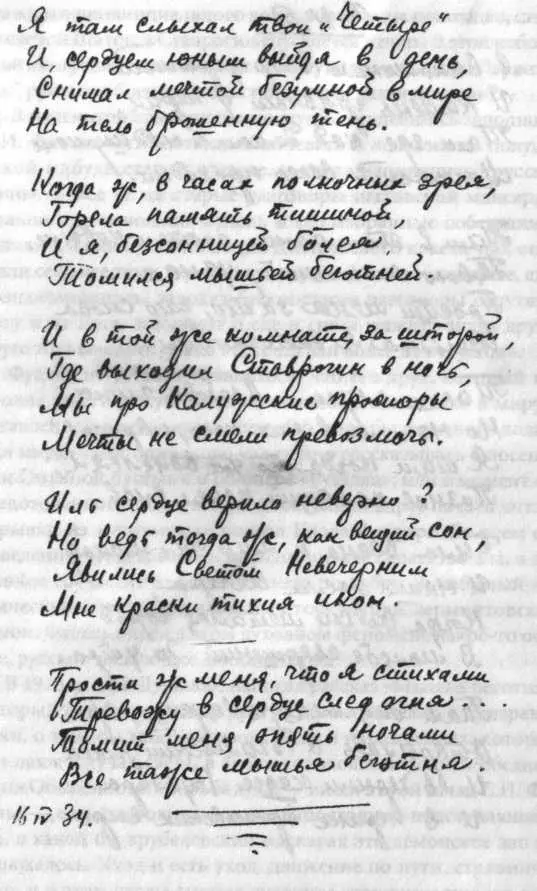 Я там слыхал твои „Четыре"
И, сердцем юным выйдя в день,
Снимал мечтой безумной в мире
На тело брошенную тень.
Когда ж в часах полночных зрея,
Горела память тишиной,
И я, безсонницей болея,
Томился мышьей беготней.
И в той же комнате, за шторой,
Где выходил Ставрогин в ночь,
Мы про Калужские просторы
Мечты не смели превозмочь.
Иль сердце верило неверно?
Но ведь тогда ж, как вещий сон,
Явились Светом Невечерним
Мне краски тихия икон.
Прости ж меня, что я стихами
Тревожу в сердце след огня...
Томит меня опять ночами
Все таже мышья беготня.
16 IV 34.